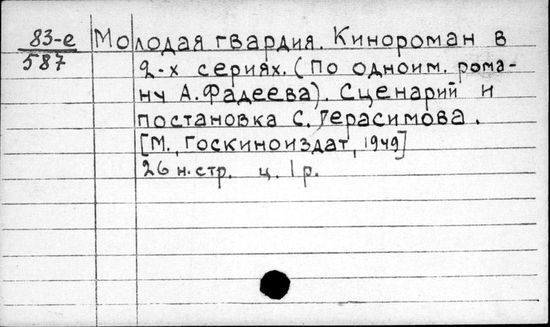 83-е Молодая гвардия. Кинороман в
587 2-х сериях. (По одноим. рома-
ну А. Фадеева). Сценарий и
постановка С. Герасимова.
[М., Госкиноиздат, 1949]
26 н. стр. ц. 1 р.